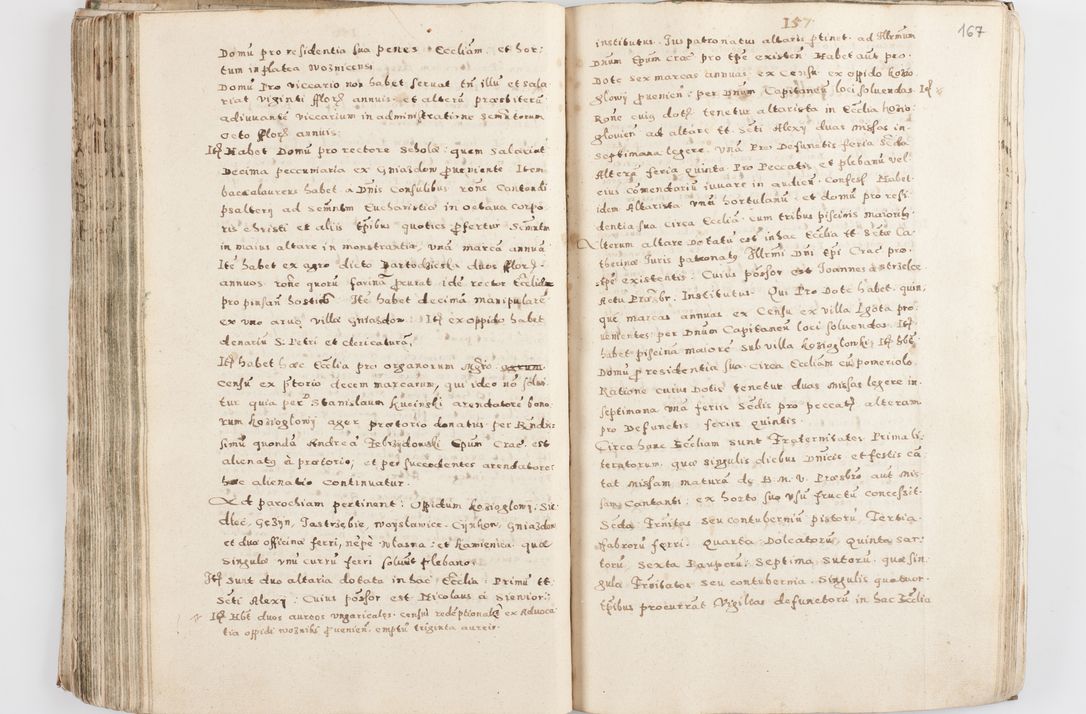 Domũ pro residentia sua penes Eccliam, et hor:
tum in platea Woznicensi
Domũ Pro viccario non habet seruat tñ illũ et sala
riat viginti fflor annuis et alterũ praesbiterũ
adiuuantẽ viccarium in administratione semñtorum
Octo fflor annuis.
Itẽ Habet Domũ pro rectore Scholæ quem Salariat
Decima pecunniaria ex Gniazdow proueniente Item
baccalaureus habet a Dñis Consulibus rone Cantandi
psalterij ad Semñtm Eucharistiæ in Octaua corpo
ris christi et aliis tpibus quoties profertur Semñtm
in maius altare in monstrantia, vnã marcã annuã
Itẽ habet ex agro dicto Bartodzieska duos fflor
annuos rone quorũ farinã procurat idẽ rector Eccliæ
pro pinsañ hostiis Itẽ habet decimã manipularẽ
ex vno aruo villæ Gniazdow: Itẽ ex oppido habet
denariũ S. Petri et clericaturã,
Itẽ habet hæc Ecclia pro organorum Mgrõ
Censũ ex prtorio decem marcarum, qui ideo nõ solui
tur quia per Stanislaum Kucinski arendatorẽ bono
rum Koziegłowy ager prætorio donatus per Rndis
simũ quondã Andreã Zebrzydowski Epũm Crac. est
alienatus à prætorio; et per succedentes arendatores
hæc alienatio continuatur.
Ad parochiam pertinent: Oppidum Koziegłowy. Sie
dlec, Gężyn, Jastrzębie, Woysławice. Cynkow, Gniazdow
et duæ officinæ ferri, nẽpè Własna: et Kamienica. quæ
singulæ vnũ currũ ferri soluũt plebano
Itẽ Sunt duo altaria dotata in hac Ecclia: Primũ tt
Scti Alexy: Cuius possor est Nicolaus à Sieniow:
Itẽ Hbt duos aureos vngaricales censũs redẽptionalis ex Aduoca
tia oppidi Wozniki proueñien. emptũ triginta aureis.
157
167
institutus. Jus patronatus altaris ptinet ad Illrmum
Dnũm Epũm Crac pro tpẽ existeñ Habet aut pro
Dote sex marcas annuas ex Censu ex oppido Kozie
głowy proueñien: per Dnũm Capitaneũ loci soluendas. Itẽ
Rone cuius dotis tenetur altarista in Ecclia Kozie
głouien ad altare tt. Scti Alexy duas missas in
septimana legere. vnã Pro Defunctis feria Scda
Alterã feria quinta Pro Peccatis et plebanũ vel
eius cõmendariũ iuuare in audien. Confess. Habet
idem Altarista vnũ hortulanũ et domũ pro resi
dentia sua circa Eccliã cum tribus piscinis maioribus
Alterum altare Dotatũ est in hac Ecclia tt Sctæ Ca
therinæ Juris patronatus Illrmi Dni Epi Crac pro
tpẽ existentis. Cuius possor est Joannes à Strzelce
Actu Præsbr. Institutus. Qui Pro Dote habet quin;
que marcas annuas ex Censu ex villa Lgota pro
uenientes: per Dnũm Capitaneũ loci soluendas. Itẽ
habet piscinã maiorẽ sub villa Koziogłonki; Itẽ hbt
Domũ p residentia sua circa Eccliam cũ pomeriolo
Ratione cuius Dotis tenetur duas missas legere in
septimana vnã feriis Scdis pro peccatis alteram
pro Defunctis feriis quintis.
Circa hanc Eccliam sunt Fraternitates Prima li
teratorum, quæ singulis diebus Dnicis et festis cã
tat missam maturã de B. M. V. Præsbro aut mis
sam Cantanti: ex horto suo vsũ fructũ concessit.
Scda Frnitas seu contuberniũ pistorũ, Tertia.
Fabrorũ ferri. Quarta Dolcatorũ, Quinta Sar:
torũ Sexta Pauperũ: Septima Sutorũ. quæ sin
gulæ Frnitates seu contubernia. Singulis quatuor
tpibus procurrãt Vigilias defunctorũ in hac Ecclia